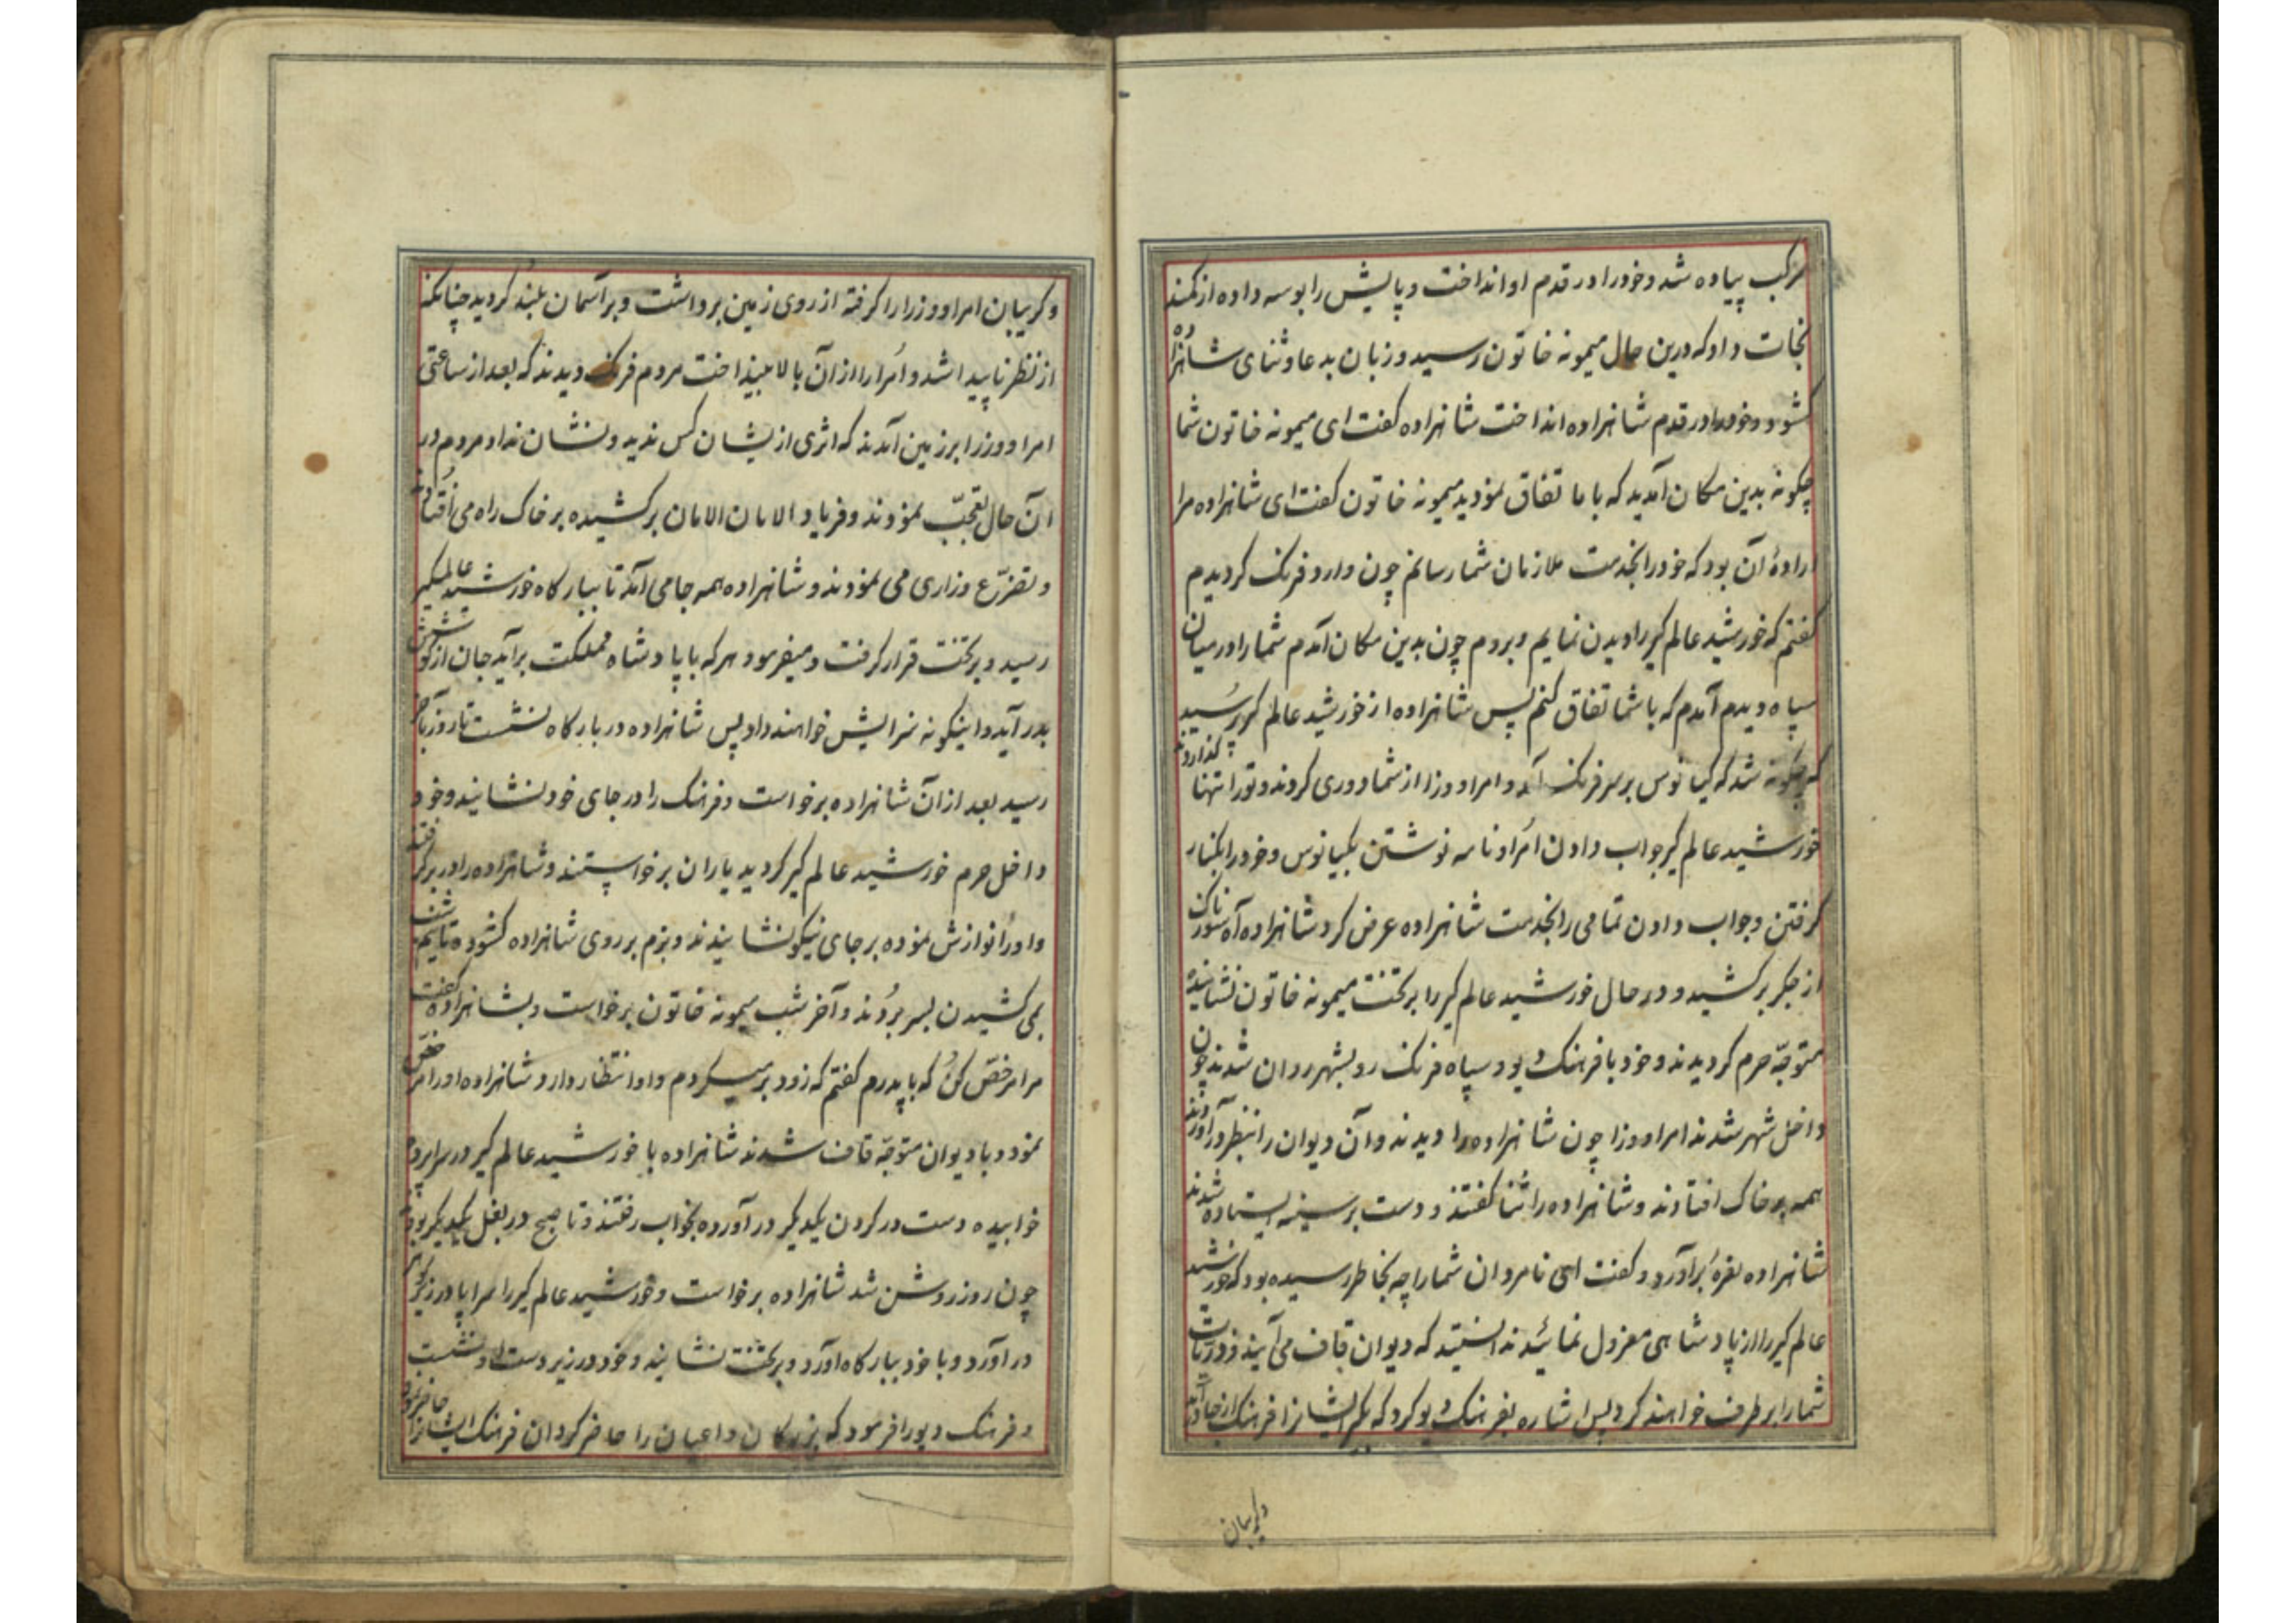 مرکب پیاده شد و خود را در قدم او انداخت و پایش را بوسه داده از کمند
نجات داد که درین حال میمونه خاتون رسید و زبان بدعا و ثنای شاهزاده
کشود و خود را در قدم شاهزاده انداخت شاهزاده کفت ای میمونه خاتون شما
چکونه بدین مکان آمدید که با ما تفاق نمودید میمونه خاتون کفت ای شاهزاده مرا
ارادهٔ آن بود که خود را بخدمت ملازمان شما رسانم چون وارد فرنک کردیدم
کفتم که خورشید عالم کیر را دیدن نمایم و بروم چون بدین مکان آمدم شما را در میان
سپاه دیدم آمدم که با شما تفاق کنم پس شاهزاده از خورشید عالم کیر پرسید
که چکونه شد که کیانوس بر سر فرنک آمد و امرا و وزرا از شما دوری کردند و تو را تنها کذاردند
خورشید عالم کیر جواب دادن اُمرا و نامه نوشتن بکیانوس و خود را بکنار
کرفتن و جواب دادن تمامی را بخدمت شاهزاده عرض کرد شاهزاده آه سوزناک
از جکر برکشید و در حال خورشید عالم کیر را بر تخت میمونه خاتون نشانیده
متوجّه حرم کردیدند و خود با فرهنک دیو و سپاه فرنک رو بشهر روان شدند چون
داخل شهر شدند امرا و وزرا چون شاهزاده را دیدند و آن دیوان را بنظر درآوردند
همه بر خاک افتادند و شاهزاده را ثنا کفتند و دست بر سینه ایستاده شدند
شاهزاده نعرهٔ برآورد و کفت ای نامردان شما را چه بخاطر رسیده بود که خورشید
عالم کیر را از پادشاهی معزول نمائید ندانستید که دیوان قاف می آیند و ذریات
شما را بر طرف خواهند کرد پس اشاره بفرهنک دیو کرد که بکیر ایشانرا فرهنک از جا درآمد
و کریبان
و کریبان امرا و وزرا را کرفته از روی زمین برداشت و بر آسمان بلند کردید چنانکه
از نظر ناپیدا شد و اُمرا را از آن بالا بینداخت مردم فرنک دیدند که بعد از ساعتی
امرا و وزرا بر زمین آمدند که اثری از ایشان کس ندید و نشان نداد مردم در
آن حال تعجّب نمودند و فریاد الامان الامان برکشیده بر خاک راه می اُفتادند
و تضرّع و زاری می نمودند و شاهزاده همه جا می آمد تا ببارکاه خورشید عالمکیر
رسید و بر تخت قرار کرفت و میفرمود هر که با پادشاه مملکت برآید جان از کوش
بدر آید و اینکونه سزایش خواهند داد پس شاهزاده در بارکاه نشست تا روز بآخر
رسید بعد از آن شاهزاده برخواست و فرهنک را در جای خود نشانید و خود
داخل حرم خورشید عالم کیر کردید یاران برخواستند و شاهزاده را در بر کرفتند
و او را نوازش نموده بر جای نیکو نشانیدند و بزم بر روی شاهزاده کشوده تا نیم شب
بمی کشیدن بسر بُردند و آخر شب میمونه خاتون برخواست و بشاهزاده کفت
مرا مرخصّ کن که با پدرم کفتم که زود برمیکردم و او انتظار دارد شاهزاده او را مرخصّ
نمود و با دیوان متوجّه قاف شدند شاهزاده با خورشید عالم کیر در سراپرده
خوابیده دست در کردن یکدیکر درآورده بخواب رفتند و تا صبح در بغل یکدیکر بودند
چون روز روشن شد شاهزاده برخواست و خورشید عالم کیر را سراپا در زیور
درآورد و با خود ببارکاه آورد و بر تخت نشانید و خود در زیر دست او نشست
و فرهنک دیو را فرمود که بزرکان و اعیان را حاضر کردان فرهنک ایشانرا حاضر نمود